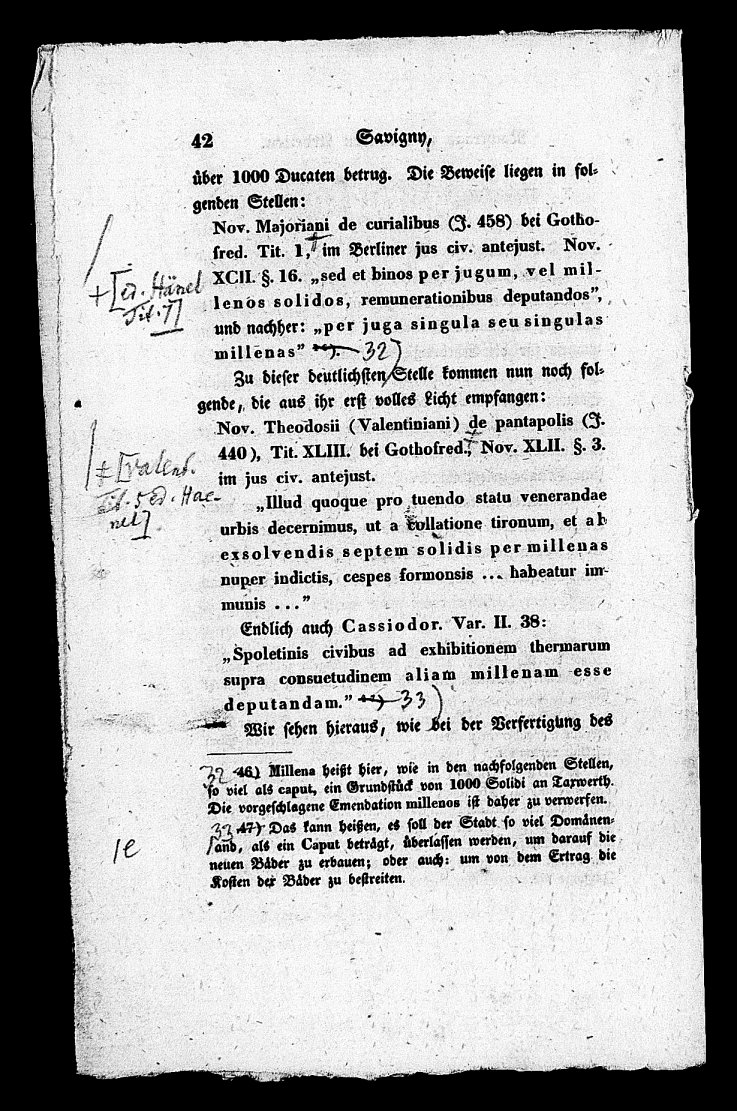 42 Savigny,
über 1000 Ducaten betrug. Die Beweise liegen in fol-
genden Stellen:
Nov. Majoriani de curialibus (J. 458) bei Gotho-
fred. Tit. 1,+ im Berliner jus civ. antejust. Nov.
+[ed. Hänel
Tit. 7]
XCII. §. 16. „sed et binos per jugum, vel mil-
lenos solidos, remunerationibus deputandos”,
und nachher: „per juga singula seu singulas
millenas” 32)
Zu dieser deutlichsten Stelle kommen nun noch fol-
gende, die aus ihr erst volles Licht empfangen:
Nov. Theodosii (Valentiniani) de pantapolis (J.
440), Tit. XLIII. bei Gothofred.,+ Nov. XLII. §. 3.
+[Valent.
Tit. 5 Ed. Hae-
nel]
im jus civ. antejust.
„Illud quoque pro tuendo statu venerandae
urbis decernimus, ut a collatione tironum, et ab
exsolvendis septem solidis per millenas
nuper indictis, cespes formonsis ... habeatur im-
munis ...”
Endlich auch Cassiodor. Var. II. 38:
„Spoletinis civibus ad exhibitionem thermarum
supra consuetudinem aliam millenam esse
deputandam.” 33)
Wir sehen hieraus, wie bei der Verfertigung des
32 46) Millena heißt hier, wie in den nachfolgenden Stellen,
so viel als caput, ein Grundstück von 1000 Solidi an Taxwerth.
Die vorgeschlagene Emendation millenos ist daher zu verwerfen.
33 47) Das kann heißen, es soll der Stadt so viel Domänen-
land, als ein Caput beträgt, überlassen werden, um darauf die
le
neuen Bäder zu erbauen; oder auch: um von dem Ertrag die
Kosten der Bäder zu bestreiten.